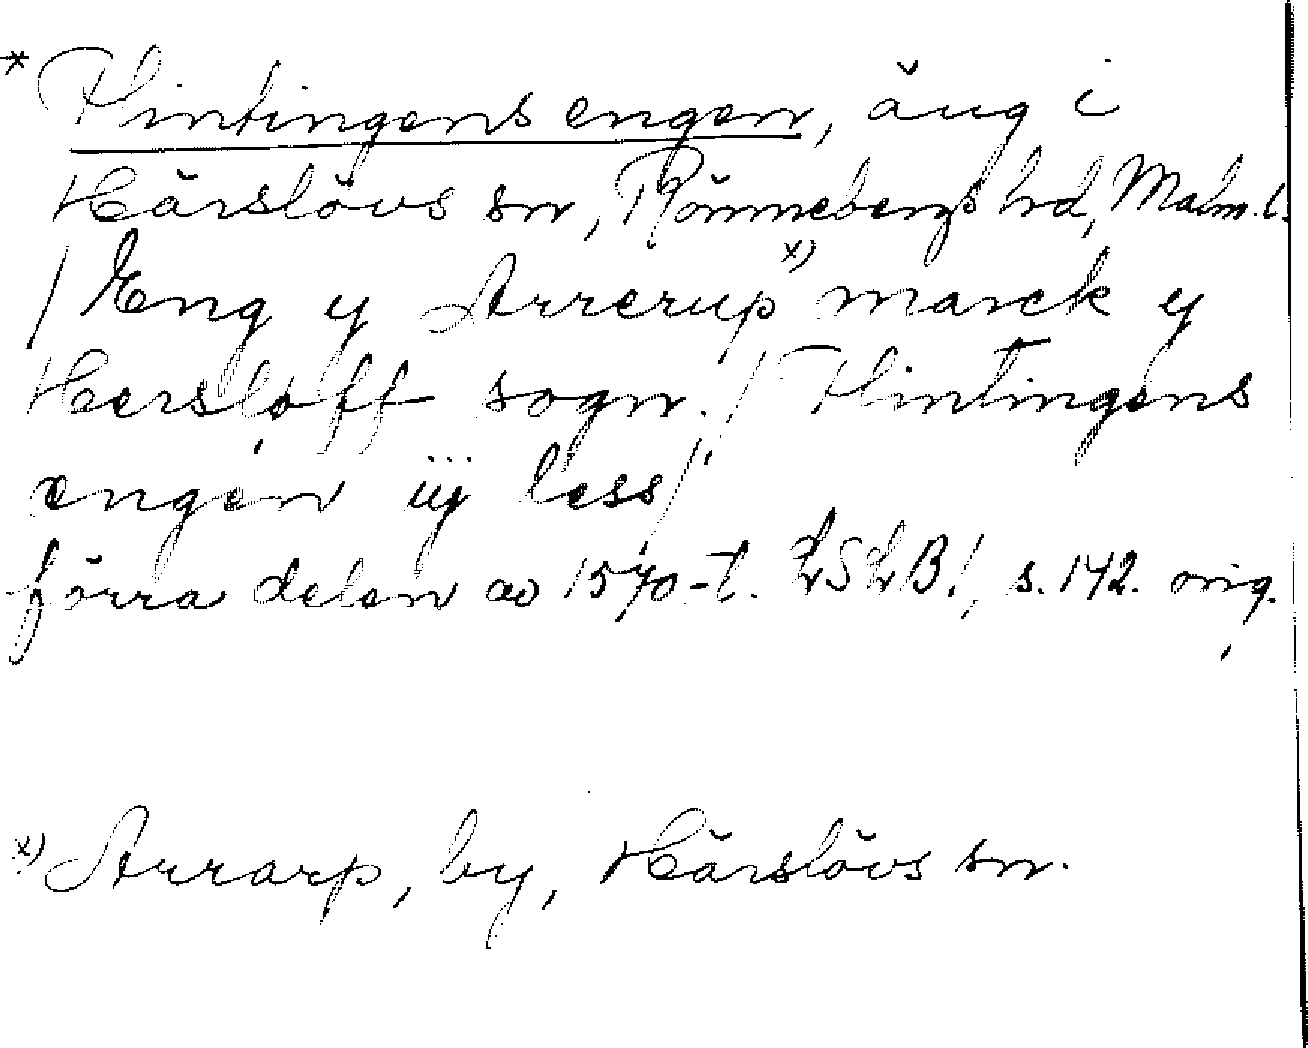 * Flintingens engen, äng i
Härslövs sn, Rönnebergs hrd, Malm. l.
/Eng y Arrerup x) marck y
Hersløff sogn./ Flintingens
engen iij less/
förra delen av 1570-t. LSLB!, s. 142. orig.
x) Arrarp, by, Härslövs sn.